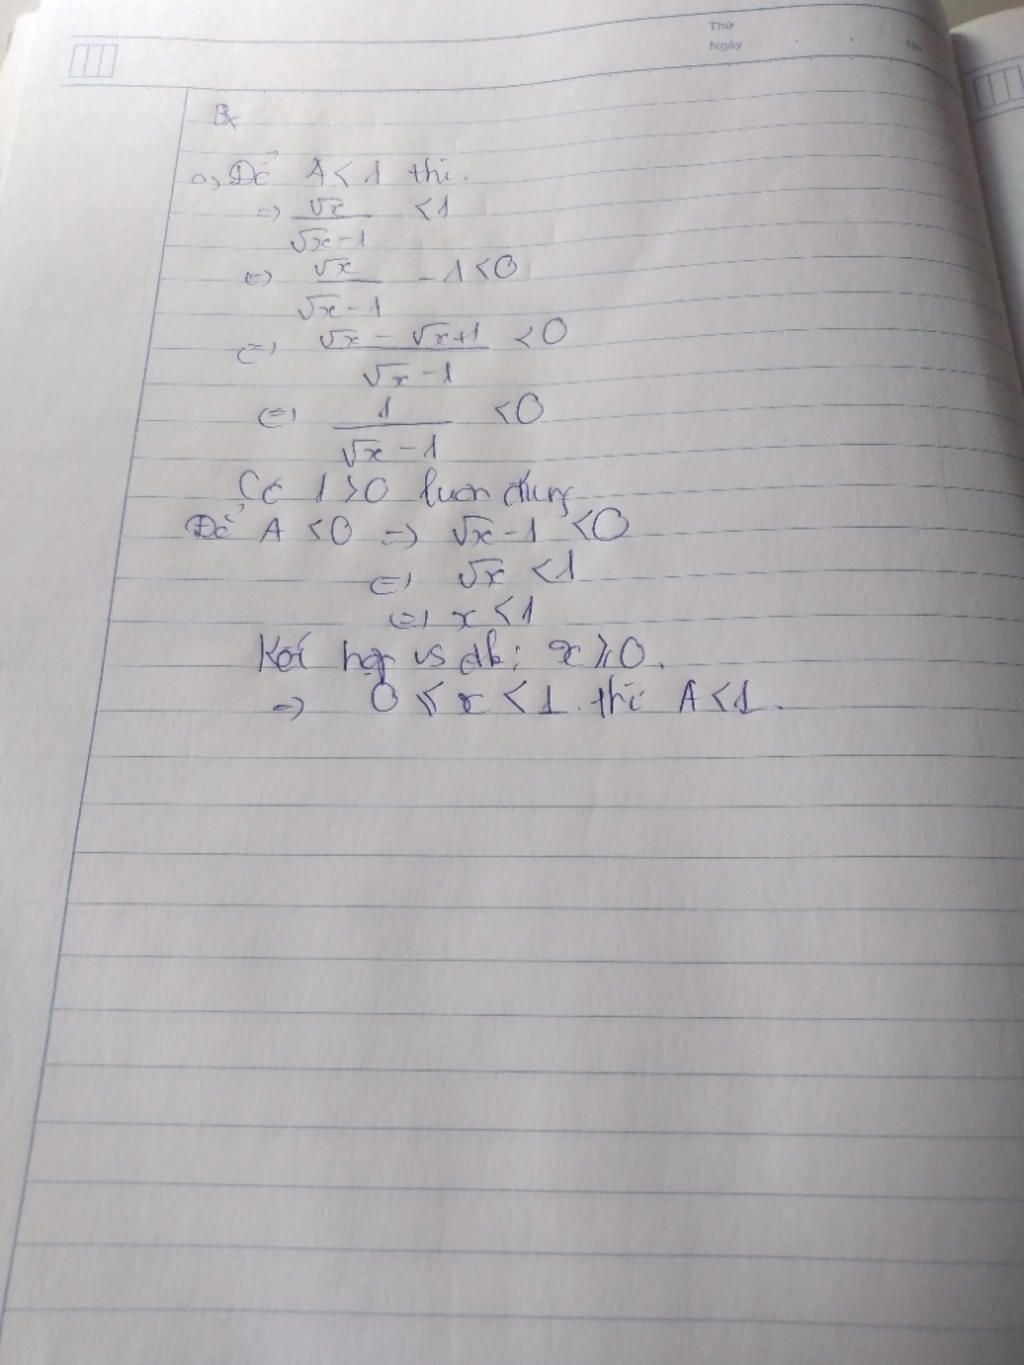 Thứ
Ngày
No
B
a, Để A < 1 thì.
=> √x / (√x - 1) < 1
<=> √x / (√x - 1) - 1 < 0
<=> (√x - √x + 1) / (√x - 1) < 0
<=> 1 / (√x - 1) < 0
Có 1 > 0 luôn đúng
Để A < 0 => √x - 1 < 0
<=> √x < 1
<=> x < 1
Kết hợp vs đk: x ⩾ 0.
=> 0 ⩽ x < 1. thì A < 1.